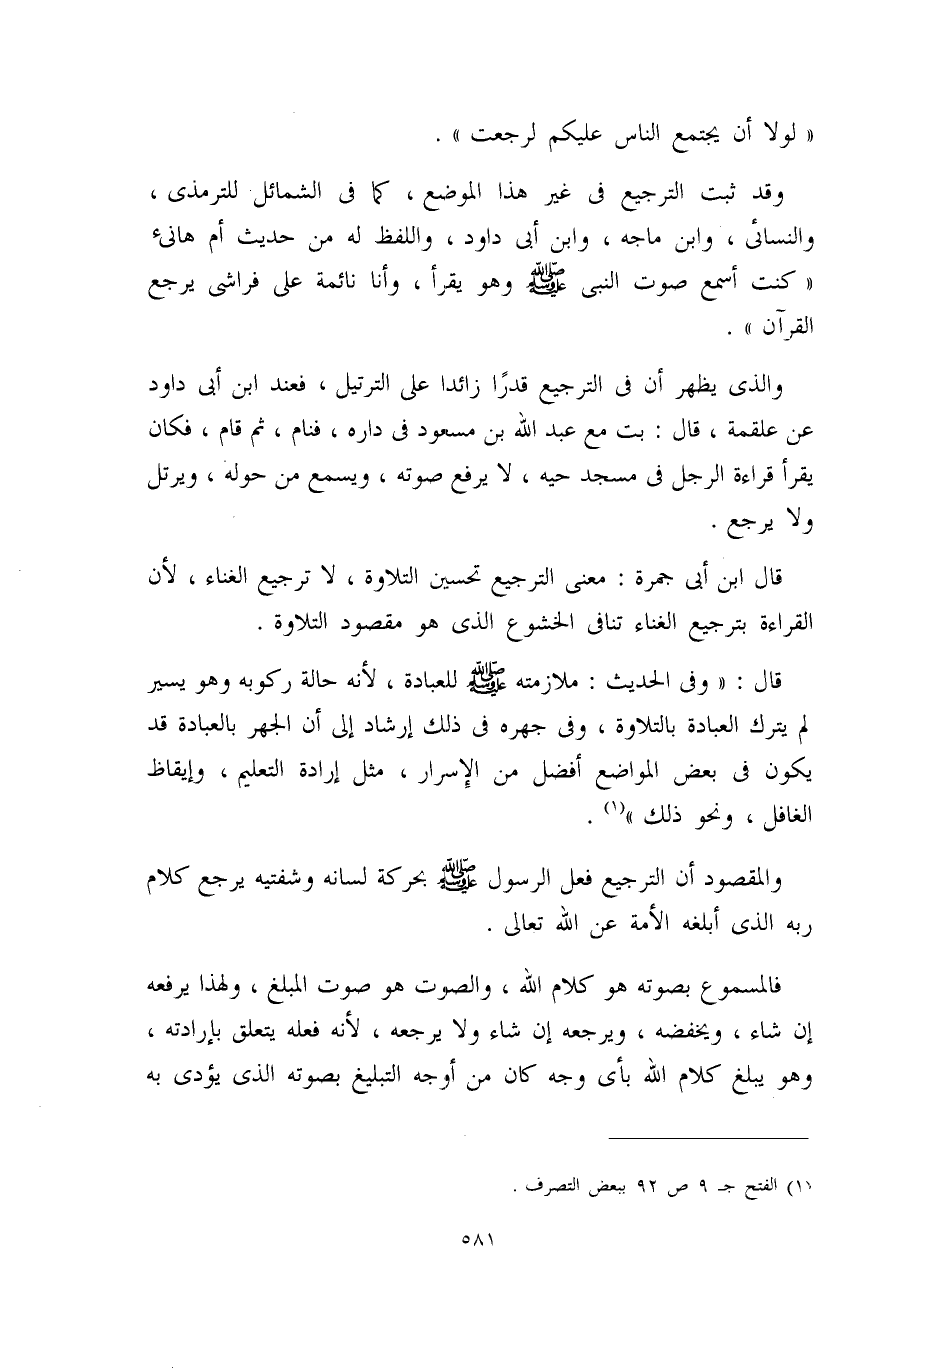 « لولا أن يجتمع الناس عليكم لرجعت » .
وقد ثبت الترجيع فى غير هذا الموضع ، كما فى الشمائل للترمذى ،
والنسائى ، وابن ماجه ، وابن أبى داود ، واللفظ له من حديث أم هانىء
« كنت أسمع صوت النبى ﷺ وهو يقرأ ، وأنا نائمة على فراشى يرجع
القرآن » .
والذى يظهر أن فى الترجيع قدرًا زائدا على الترتيل ، فعند ابن أبى داود
عن علقمة ، قال : بت مع عبد الله بن مسعود فى داره ، فنام ، ثم قام ، فكان
يقرأ قراءة الرجل فى مسجد حيه ، لا يرفع صوته ، ويسمع من حوله ، ويرتل
ولا يرجع .
قال ابن أبى جمرة : معنى الترجيع تحسين التلاوة ، لا ترجيع الغناء ، لأن
القراءة بترجيع الغناء تنافى الخشوع الذى هو مقصود التلاوة .
قال : « وفى الحديث : ملازمته ﷺ للعبادة ، لأنه حالة ركوبه وهو يسير
لم يترك العبادة بالتلاوة ، وفى جهره فى ذلك إرشاد إلى أن الجهر بالعبادة قد
يكون فى بعض المواضع أفضل من الإسرار ، مثل إرادة التعليم ، وإيقاظ
الغافل ، ونحو ذلك »(١) .
والمقصود أن الترجيع فعل الرسول ﷺ بحركة لسانه وشفتيه يرجع كلام
ربه الذى أبلغه الأمة عن الله تعالى .
فالمسموع بصوته هو كلام الله ، والصوت هو صوت المبلغ ، ولهذا يرفعه
إن شاء ، ويخفضه ، ويرجعه إن شاء ولا يرجعه ، لأنه فعله يتعلق بإرادته ،
وهو يبلغ كلام الله بأى وجه كان من أوجه التبليغ بصوته الذى يؤدى به
(١) الفتح جـ ٩ ص ٩٢ ببعض التصرف .
٥٨١